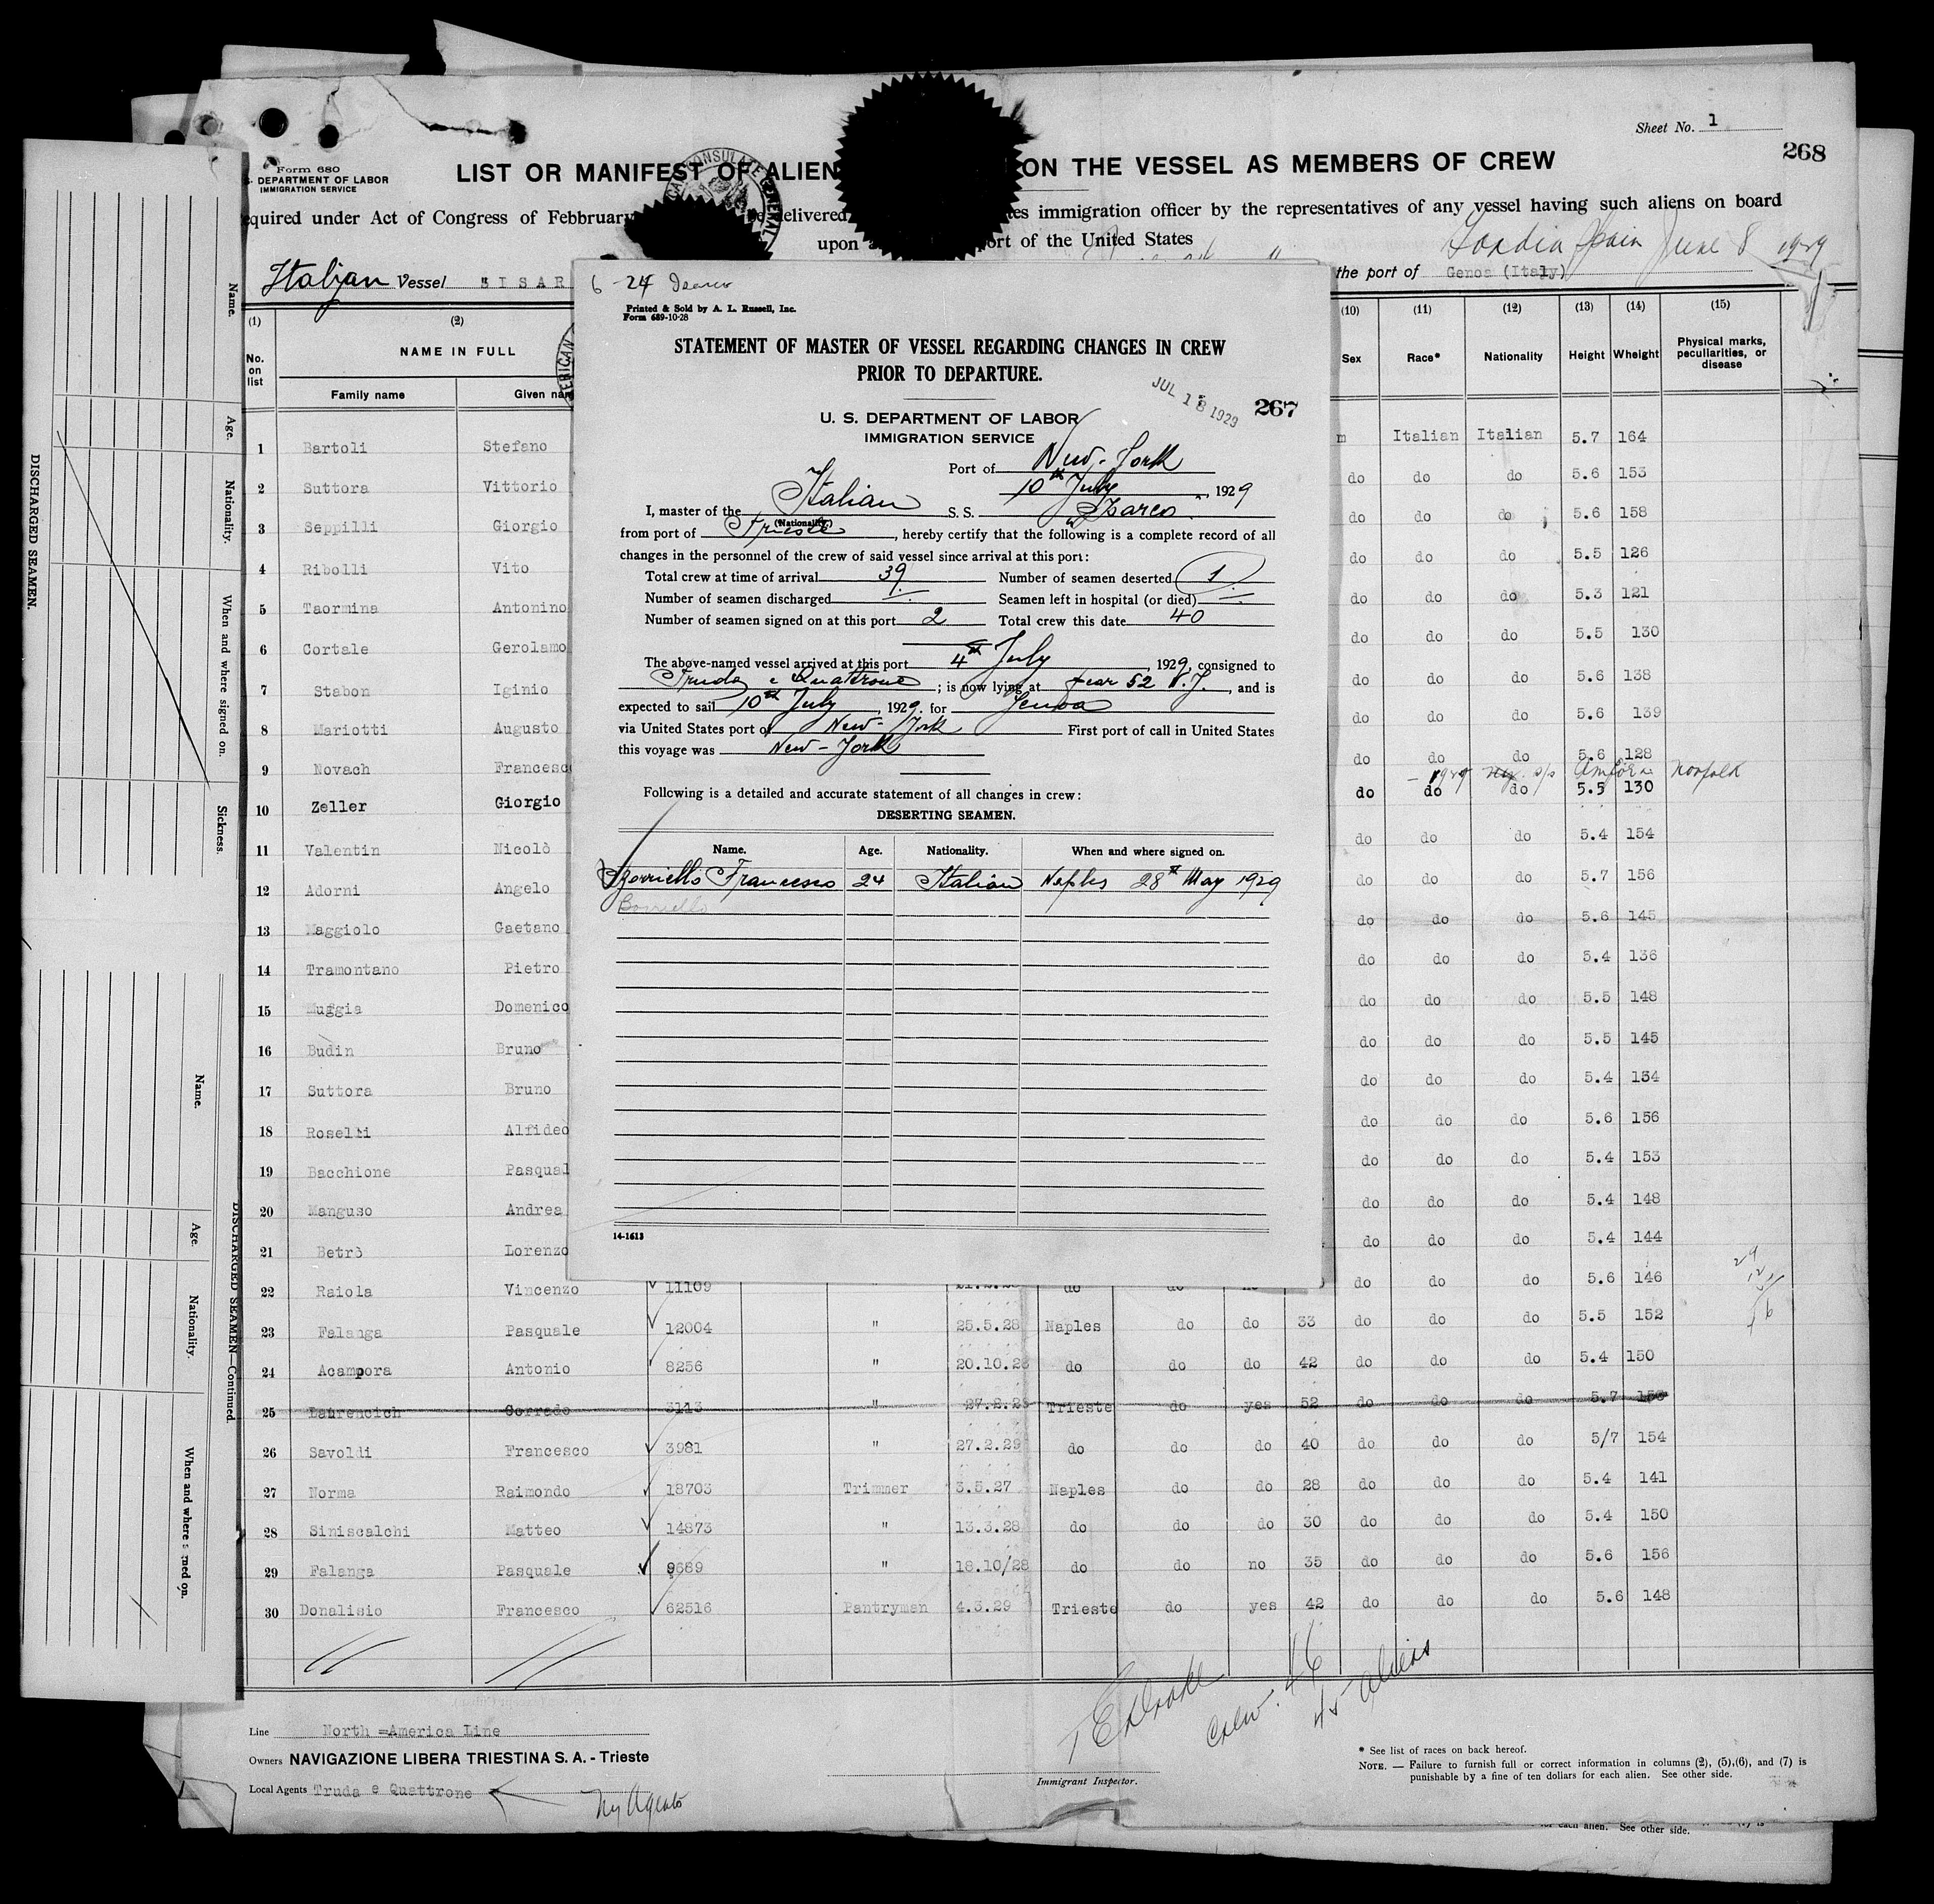 Sheet No. 1
268
Form 680
S. DEPARTMENT OF LABOR
IMMIGRATION SERVICE
LIST OR MANIFEST OF ALIEN ON THE VESSEL AS MEMBERS OF CREW
equired under Act of Congress of Febbruary delivered tes immigration officer by the representatives of any vessel having such aliens on board
upon ort of the United States
June 8 1929
Italian Vessel "ISAR the port of Genoa (Italy)
(1) (2) (10) (11) (12) (13) (14) (15)
No. on list NAME IN FULL Sex Race* Nationality Height Wheight Physical marks, peculiarities, or disease
Family name Given nam
1 Bartoli Stefano m Italian Italian 5.7 164
2 Suttora Vittorio do do do 5.6 153
3 Seppilli Giorgio do do do 5.6 158
4 Ribolli Vito do do do 5.5 126
5 Taormina Antonino do do do 5.3 121
6 Cortale Gerolamo do do do 5.5 130
7 Stabon Iginio do do do 5.6 138
8 Mariotti Augusto do do do 5.6 139
9 Novach Francesco do do do 5.6 128
Norfolk
10 Zeller Giorgio do do do 5.5 130
11 Valentin Nicolò do do do 5.4 154
12 Adorni Angelo do do do 5.7 156
13 Maggiolo Gaetano do do do 5.6 145
14 Tramontano Pietro do do do 5.4 136
15 Muggia Domenico do do do 5.5 148
16 Budin Bruno do do do 5.5 145
17 Suttora Bruno do do do 5.4 134
18 Roselli Alfideo do do do 5.6 156
19 Bacchione Pasqual do do do 5.4 153
20 Manguso Andrea do do do 5.4 148
21 Betrò Lorenzo do do do 5.4 144
22 Raiola Vincenzo 11109 do do do 5.6 146
23 Falanga Pasquale 12004 " 25.5.28 Naples do do 33 do do do 5.5 152
24 Acampora Antonio 8256 " 20.10.28 do do do 42 do do do 5.4 150
25 Laurencich Corrado 3143 " 27.2.29 Trieste do yes 52 do do do 5.7
26 Savoldi Francesco 3981 " 27.2.29 do do do 40 do do do 5/7 154
27 Norma Raimondo 18703 Trimmer 3.5.27 Naples do do 28 do do do 5.4 141
28 Siniscalchi Matteo 14873 " 13.3.28 do do do 30 do do do 5.4 150
29 Falanga Pasquale 9689 " 18.10/28 do do no 35 do do do 5.6 156
30 Donalisio Francesco 62516 Pantryman 4.3.29 Trieste do yes 42 do do do 5.6 148
Crew. 46
45 aliens
Line North =America Line
Owners NAVIGAZIONE LIBERA TRIESTINA S. A. - Trieste
Local Agents Truda e Quattrone
Ny Agents
Immigrant Inspector.
* See list of races on back hereof.
NOTE. — Failure to furnish full or correct information in columns (2), (5),(6), and (7) is
punishable by a fine of ten dollars for each alien. See other side.
for each alien. See other side.
6-24 Isarco
Printed & Sold by A. L. Russell, Inc.
Form 689-10-28
STATEMENT OF MASTER OF VESSEL REGARDING CHANGES IN CREW
PRIOR TO DEPARTURE.
JUL 18 1929
267
U. S. DEPARTMENT OF LABOR
IMMIGRATION SERVICE
Port of New-York
10th July, 1929
I, master of the Italian S. S. "Isarco"
(Nationality)
from port of Trieste, hereby certify that the following is a complete record of all
changes in the personnel of the crew of said vessel since arrival at this port:
Total crew at time of arrival 39 Number of seamen deserted 1
Number of seamen discharged Seamen left in hospital (or died)
Number of seamen signed on at this port 2 Total crew this date 40
The above-named vessel arrived at this port 4th July, 1929, consigned to
Truda e Quattrone; is now lying at pear 52 N.J., and is
expected to sail 10th July, 1929. for Genoa
via United States port of New-York First port of call in United States
this voyage was New-York
Following is a detailed and accurate statement of all changes in crew:
DESERTING SEAMEN.
Name. Age. Nationality. When and where signed on.
Borriello Francesco 24 Italian Naples 28th May 1929
Borriello
14-1613
DISCHARGED SEAMEN.
Name. Age. Nationality. When and where signed on. Sickness.
DISCHARGED SEAMEN—Continued.
Name. Age. Nationality. When and where signed on.